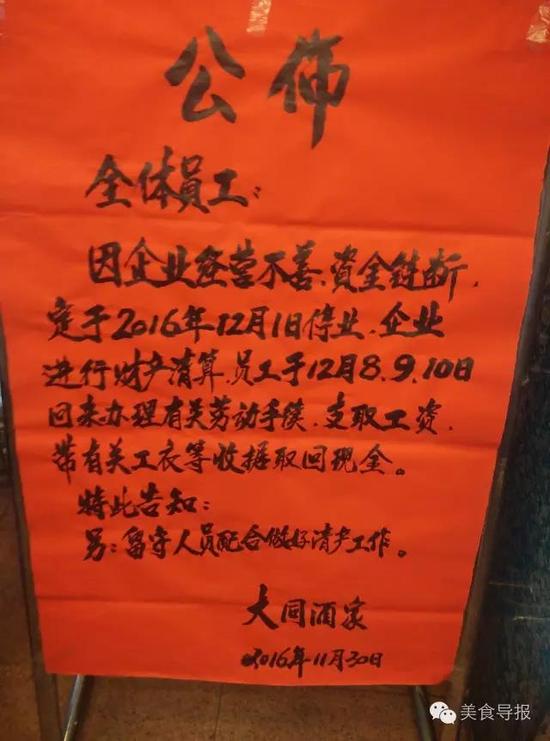 公佈
全体員工：
因企业经营不善、資金链断，
定于2016年12月1日停业、企业
进行财产清算、员工于12月8、9、10日
回来办理有关劳动手续、支取工资，
带有关工衣等收据取回现金。
特此告知：
另：留守人员配合做好清产工作。
大同酒家
2016年11月30日
美食导报